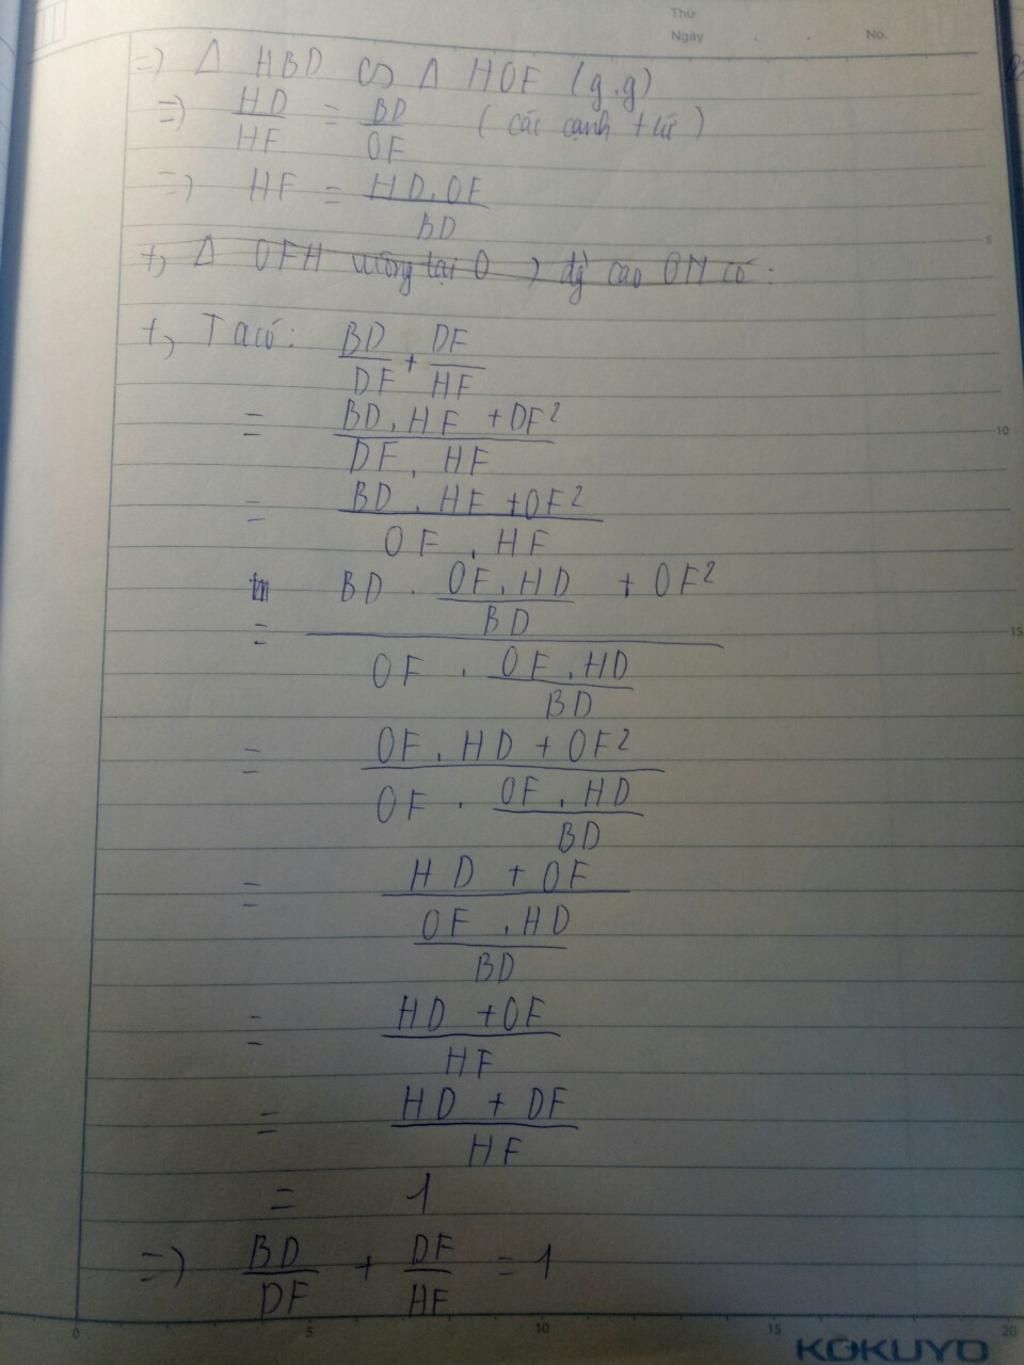 Thứ
Ngày . . No.
=> Δ HBD ∽ Δ HOF (g.g)
=> HD/HF = BD/OF (các cạnh t lệ)
=> HF = HD.OF/BD
+, Δ OFH vuông tại O, đg cao OM có:
+, Ta có: BD/DF + DF/HF
= (BD.HF + DF²)/(DF.HF)
= (BD.HF + OF²)/(OF.HF)
= (BD.(OF.HD)/BD + OF²)/(OF.(OF.HD)/BD)
= (OF.HD + OF²)/(OF.(OF.HD)/BD)
= (HD + OF)/((OF.HD)/BD)
= (HD + OF)/HF
= (HD + DF)/HF
= 1
=> BD/DF + DF/HF = 1
5
10
15
0 5 10 15 20
KOKUYO